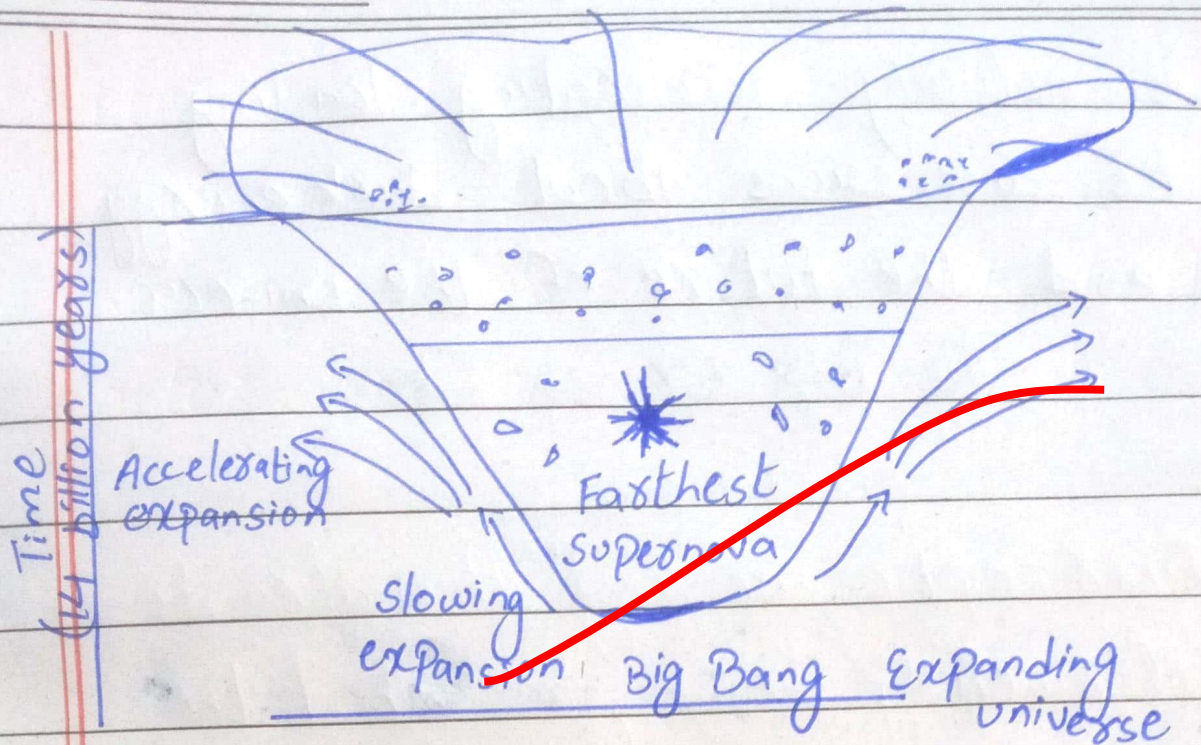 Time
(14 billion years)
Accelerating
expansion
Farthest
Supernova
Slowing
expansion
Big Bang
Expanding
universe